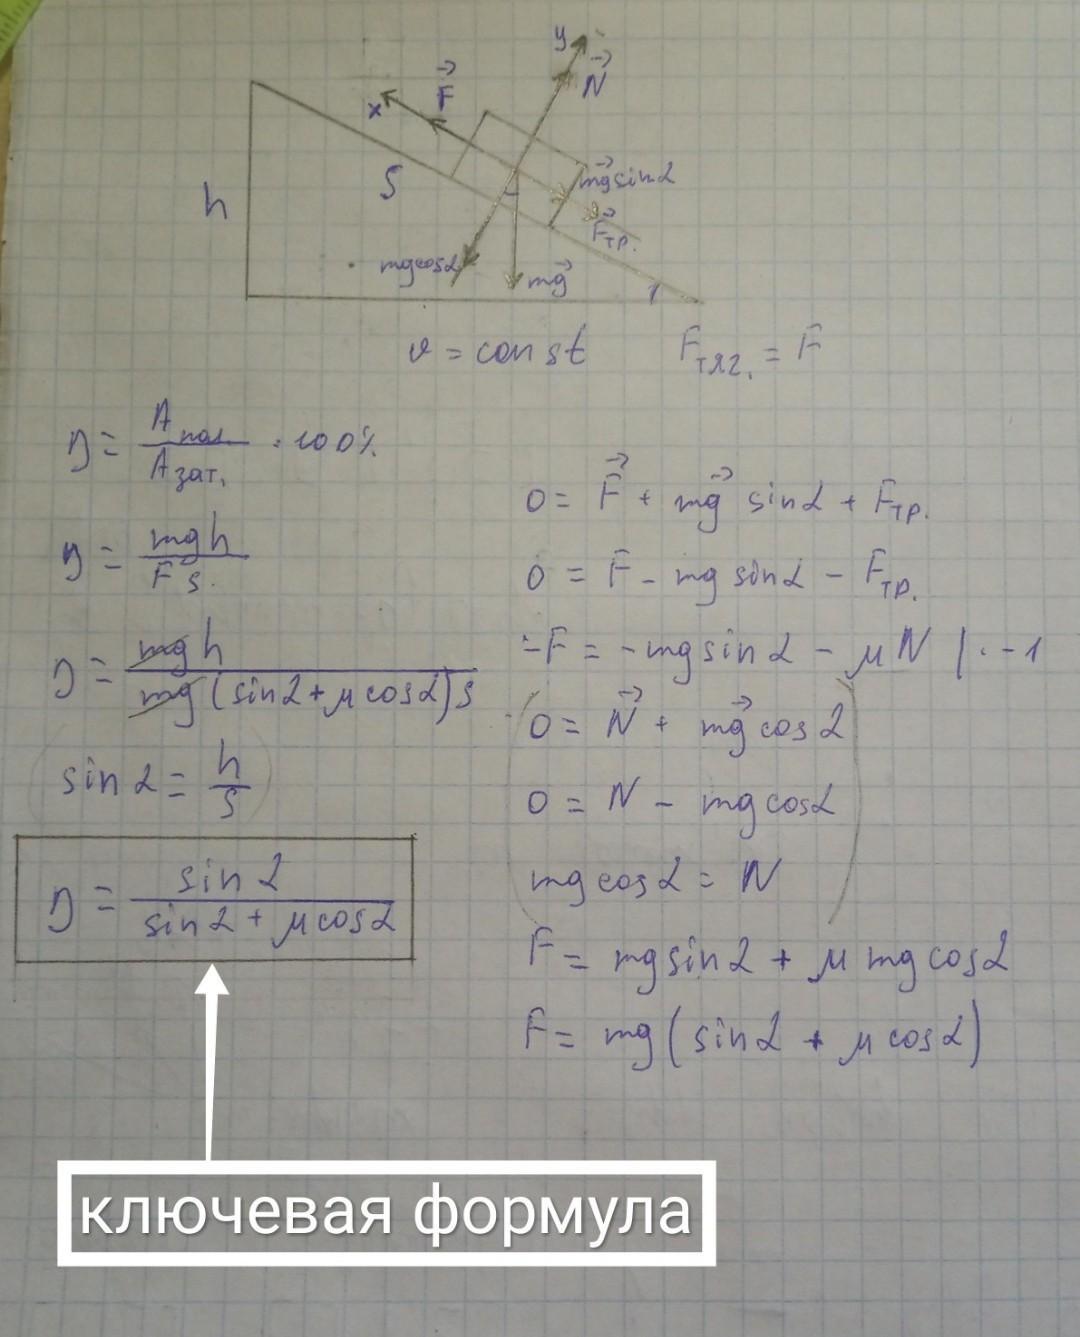 y
N⃗
x
F⃗
S
mg⃗ sinα
h
F⃗тр.
mgcosα
mg⃗
v = const Fтяг. = F
η = Aпол. / Aзат. · 100%
η = mgh / Fs.
η = mgh / mg(sinα + μcosα)s
(sinα = h/s)
η = sinα / (sinα + μcosα)
0 = F⃗ + mg⃗ sinα + Fтр.
0 = F - mg sinα - Fтр.
-F = -mg sinα - μN | · -1
0 = N⃗ + mg⃗ cosα
0 = N - mg cosα
mg cosα = N
F = mg sinα + μ mg cosα
F = mg(sinα + μcosα)
ключевая формула